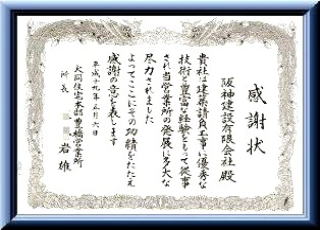 感謝状
阪神建設有限会社 殿
貴社は建築請負工事に優秀な
技術と豊富な経験をもって従事
され当営業所の発展に多大な
尽力されました
よってここにその功績をたたえ
感謝の意を表します
平成十九年三月六日
大同住宅本部豊橋営業所
所長 岩雄